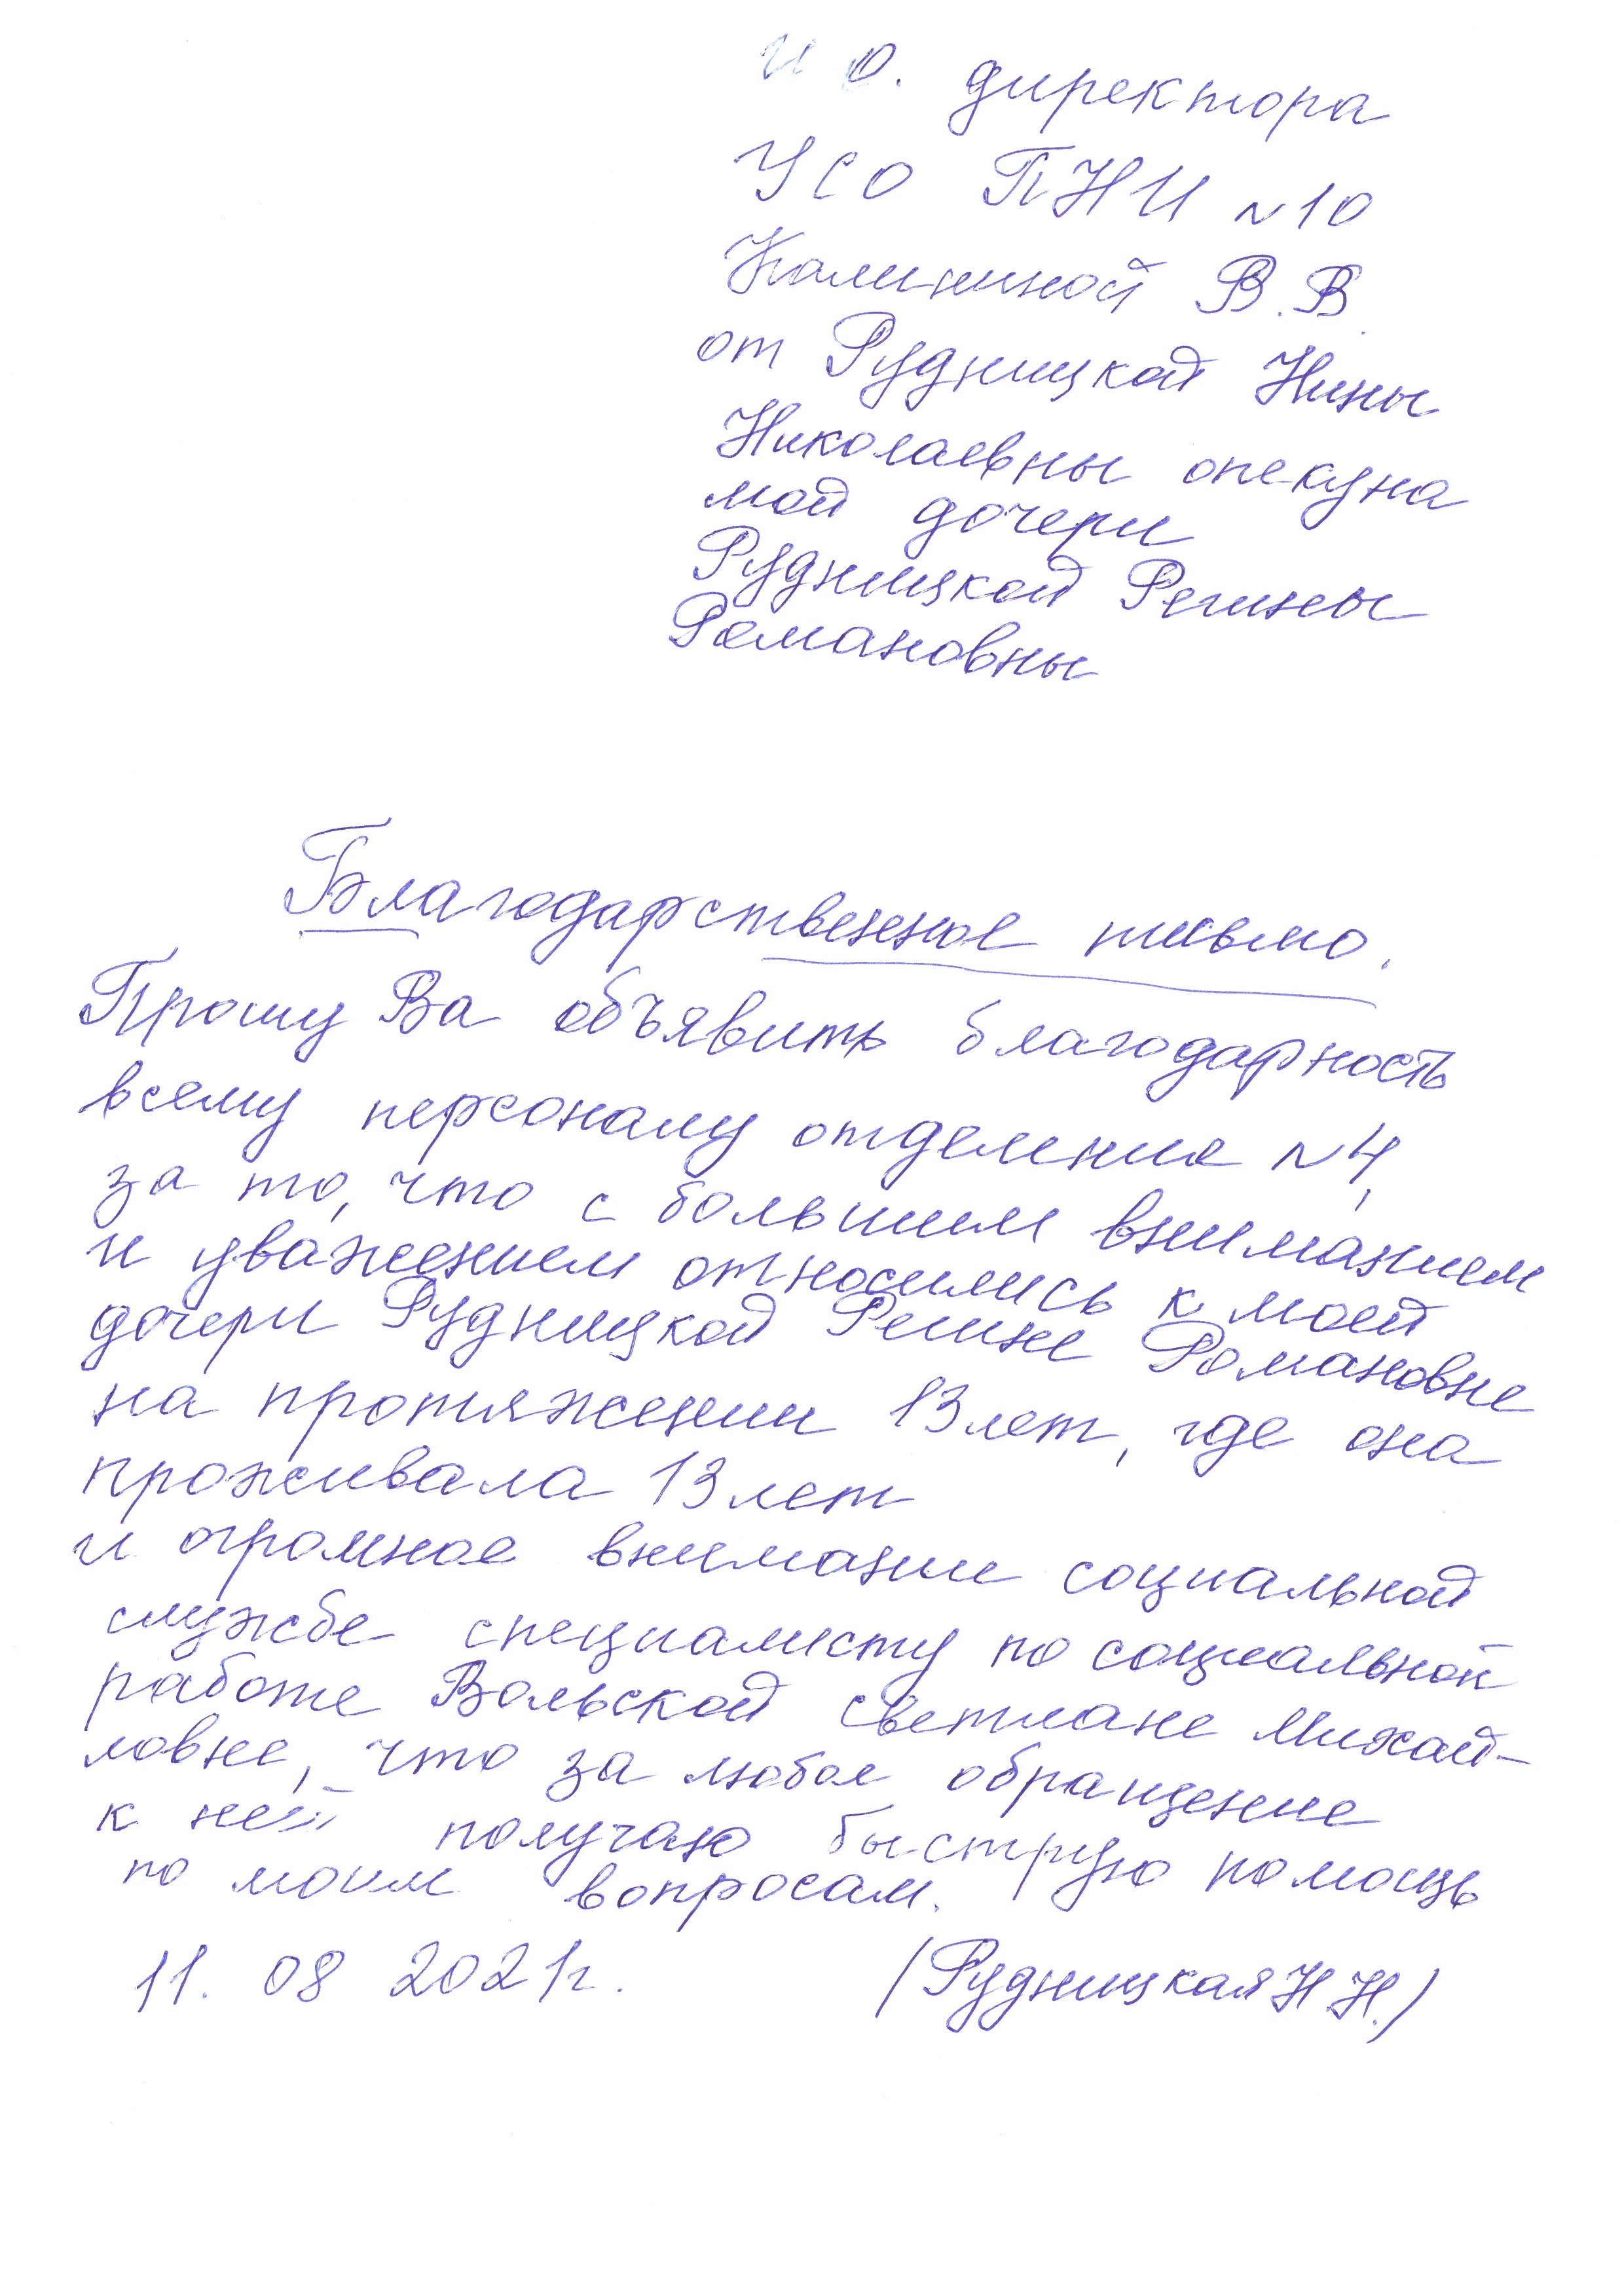 и о. директора
УСО ПНИ №10
Калининой В.В.
от Рудницкой Нины
Николаевны опекуна
мой дочери
Рудницкой Регины
Романовны
Благодарственное письмо.
Прошу Ва объявить благодарность
всему персоналу отделения №4,
за то, что с большим вниманием
и уважением относились к моей
дочери Рудницкой Регине Романовне
на протяжении 13 лет, где она
проживала 13 лет
и огромное внимание социальной
службе специалисту по социальной
работе Вольской Светлане Михай-
ловне, что за любое обращение
к ней получаю быструю помощь
по моим вопросам.
11. 08 2021г. (Рудницкая Н.Н.)